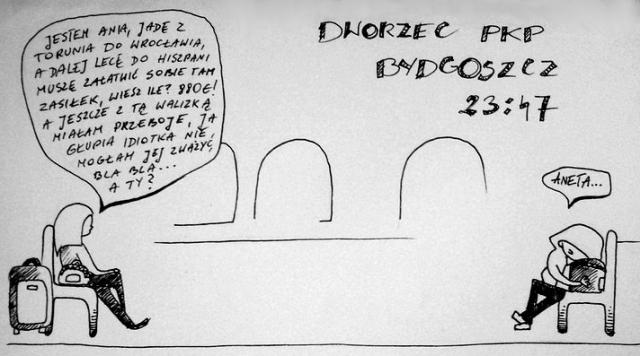 JESTEM ANIA, JADĘ Z
TORUNIA DO WROCŁAWIA,
A DALEJ LECĘ DO HISZPANI
MUSZĘ ZAŁATWIĆ SOBIE TAM
ZASIŁEK, WIESZ ILE? 880€!
A JESZCZE Z TĄ WALIZKĄ
MIAŁAM PRZEBOJE, JA
GŁUPIA IDIOTKA NIE
MOGŁAM JEJ ZWAŻYĆ
BLA BLA...
A TY?
DWORZEC PKP
BYDGOSZCZ
23:47
ANETA...